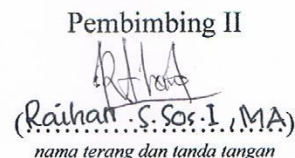 Pembimbing II
(Raihan . S.Sos.I , MA)
nama terang dan tanda tangan